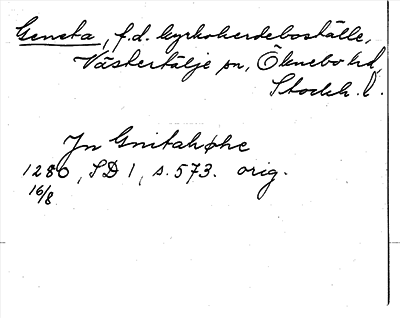 Geneta, f.d. kyrkoherdeboställe,
Västertälje sn, Öknebo hd,
Stockh. l.
Jn Gnitahøhe
1280, SD 1, s. 573. orig.
16/8